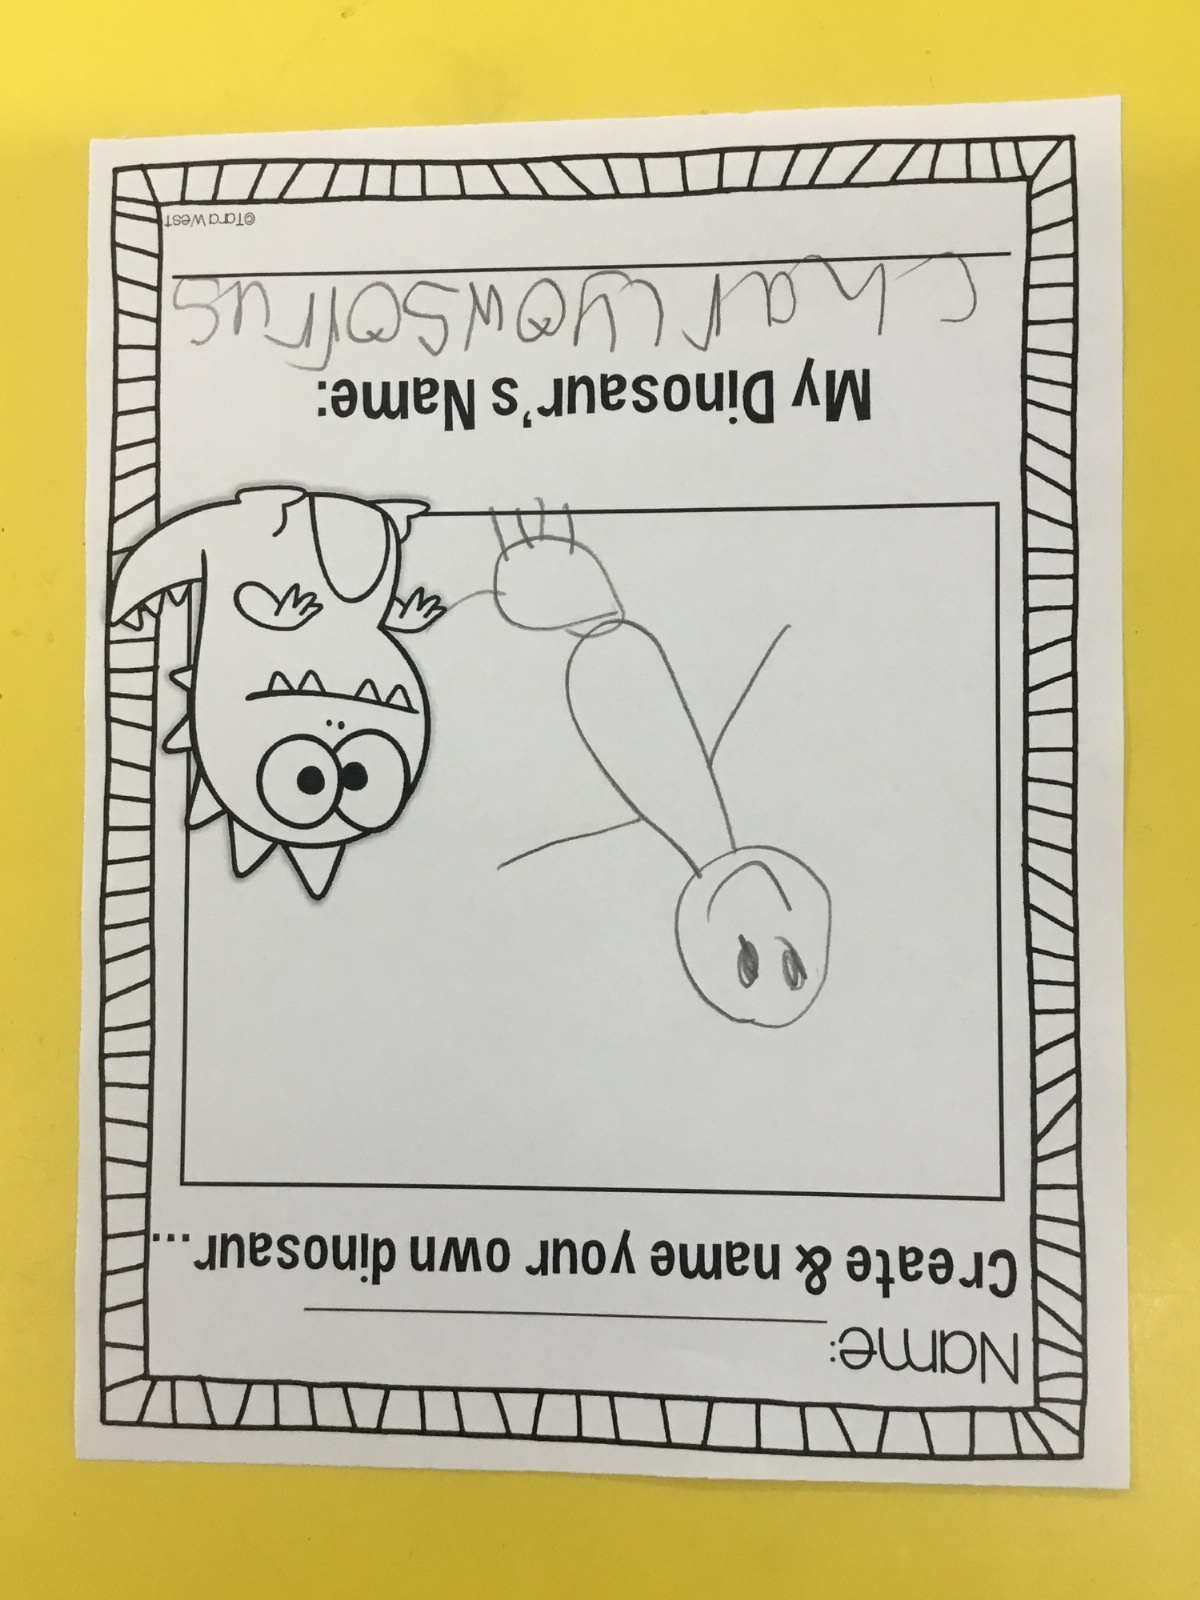 Name:
Create & name your own dinosaur...
My Dinosaur's Name:
charlyowsorrus
©Tara West